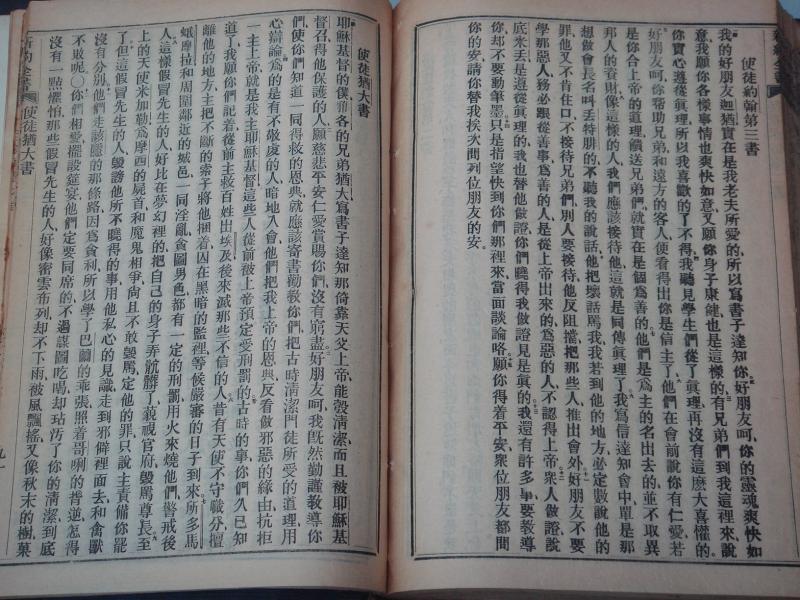 新約全書
使徒約翰第三書
我的好朋友迦猶、實在是我老夫所愛的、所以寫書子達知你、好朋友呵、你的靈魂爽快如
意、我願你各樣事情也爽快如意、又願你身子康健、也是這樣的、有兄弟們到我這裡來、說
你實心遵從眞理、所以我喜歡的了不得、我聽見學生們從了眞理、再沒有這麽大喜懽的、
好朋友呵、你帮助兄弟和遠方的客人、便看得出你是信主了、他們在會前說你有仁愛、若
是你合上帝的道理、饋送兄弟們、就實在是個爲善的、他們是爲主的名出去的、並不取異
邦人的賚財、像這樣的人、我們應該接待他、這就是同傳眞理了、我寫信達知會中、單是那
想做會長名叫丟特腓的、不聽我的說話、他把壞話罵我、我若到他的地方、必定數說他的
罪、他又不肯住口、不接待兄弟們、別人要接待他、反阻擋、把那些人推出會外、好朋友不要
學那惡人、務必跟從善事、爲善的人是從上帝出來的、爲惡的人不認得上帝、衆人做證說
底米丟是遵從眞理的、我也替他做證、你們曉得我做證見是眞的、我還有許多事要教導
你、却不要動筆墨、只是指望快到你們那裡來、當面談論咯、願你得着平安、衆位朋友都問
你的安、請你替我挨次問列位朋友的安。
使徒猶大書
耶穌基督的僕、雅各的兄弟猶大、寫書子達知那倚靠天父上帝能彀清潔、而且被耶穌基
督召得他保護的人、願慈悲平安仁愛賞賜你們、沒有窮盡、好朋友呵、我旣然勤謹教導你
們、使你們知道一同得救的恩典、就應該寄書勸教你們、把古時清潔門徒所愛的道理、用
心辯論、爲的是有不敬虔的人、暗地入會、他們把我上帝的恩典、反看做邪惡的緣由、抗拒
一主上帝、就是我主耶穌基督、這些人從前被上帝預定受刑罰的、古時的事、你們久已知
道了、我願你們記着、從前主救百姓出埃及、後來滅那些不信的人、昔有天使不守職分、擅
離他的地方、主把不斷的索子將他捆着、囚在黑暗的監裡、等候嚴審的日子到來、所多馬
蛾摩拉和周圍鄰近的城邑、一同淫亂、貪圖男色、都有一定的刑罰、用火來燒他們、警戒後
人、這樣假冒先生的人、好比在夢幻裡的、把自己的身子弄骯髒了、藐視官府、毀罵尊長、至
上的天使米加勒、爲摩西的屍首和魔鬼相爭、尚且不敢毀罵、定他的罪、只說主責備你罷
了、但這假冒先生的人、毀謗他所不曉得的事、用他私心的見識、走到邪僻裡面去、和禽獸
沒有分別、他們走該隱的那條路、因爲貪利、所以學了巴蘭的乖張、照着哥喇的背逆、怎得
不敗呢、他們相愛擺設筵宴、他們定要同席的、不過謀圖吃喝、却玷汚了你的清潔、到底
沒有一點懼怕、那些假冒先生的人、好像密雲布列、却不下雨、被風飄搖、又像秋末的樹、菓
新約全書 使徒猶大書
九一